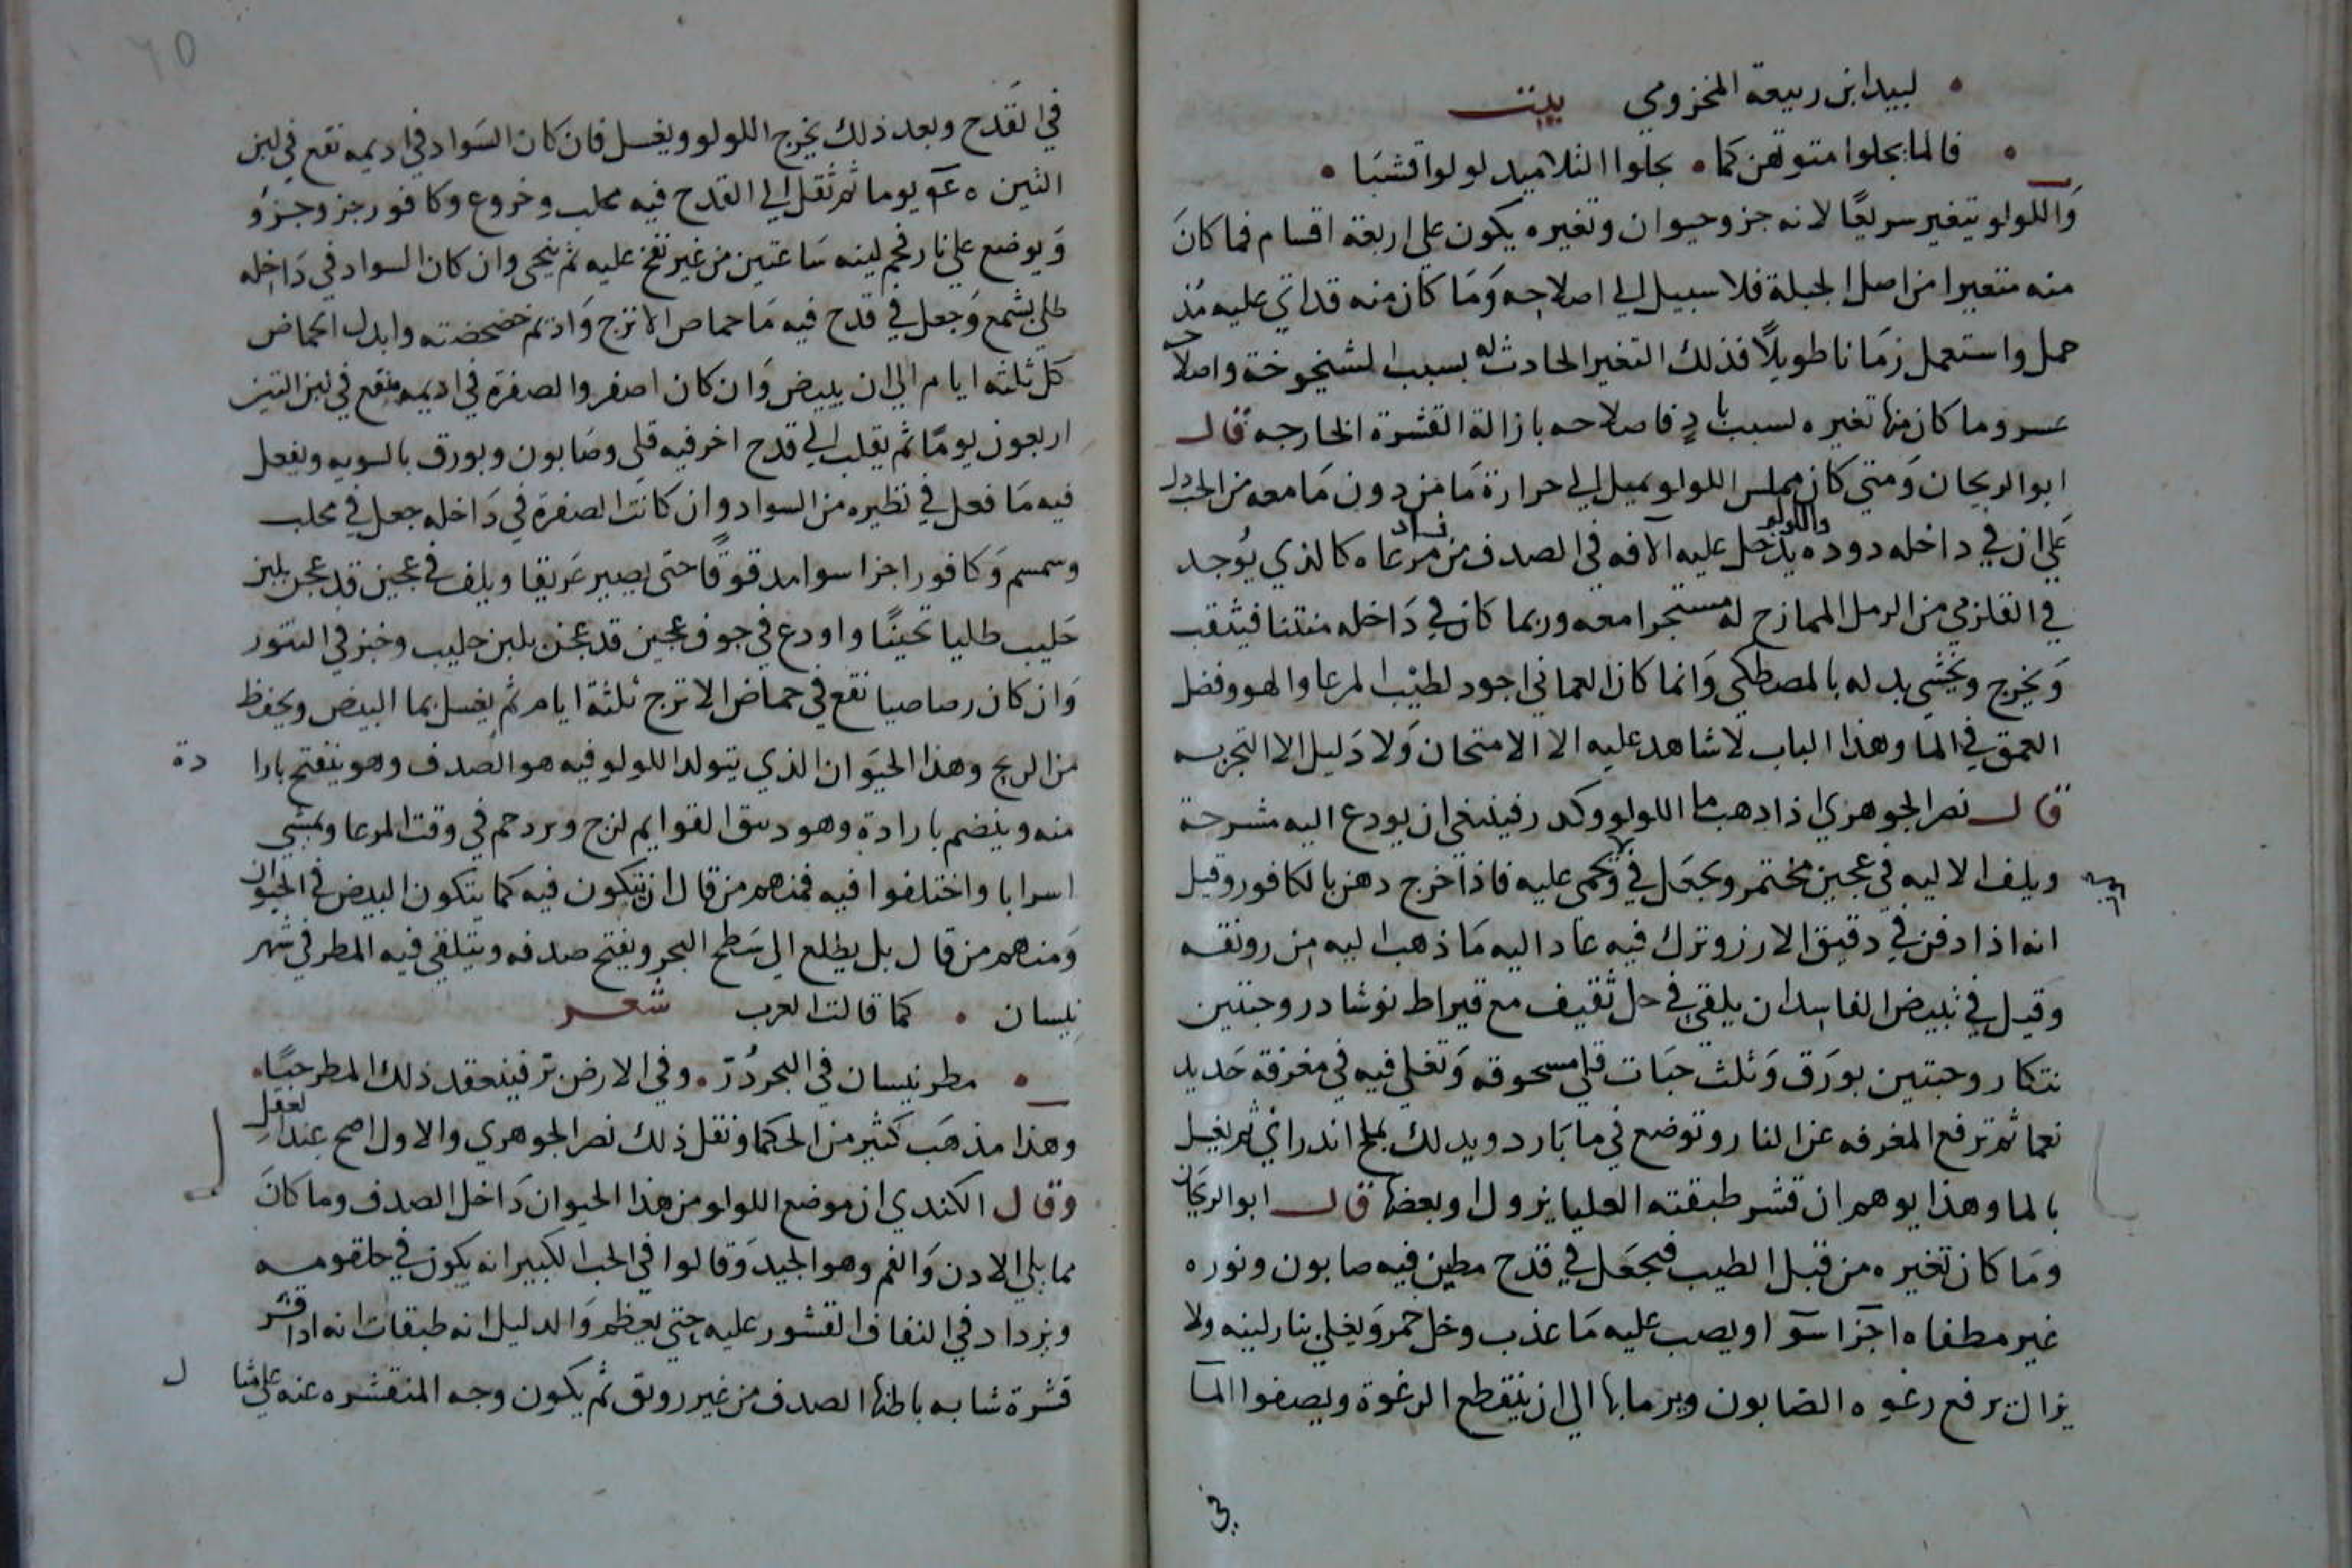 لبيد ابن ربيعة المخزومي بيت
فالما يجلوا متونهن كما • يجلوا التلاميد لولوا قشبا •
واللولو يتغير سريعًا لانه جزو حيوان وتغيره يكون علي اربعة اقسام فما كان
منه متغيرا من اصل الجبلة فلا سبيل الي اصلاحه وما كان منه قد اتي عليه مُذ
حمل واستعمل زمانا طويلاً فذلك التغير الحادث له بسبب الشيخوخة واصلاحه
عسر وما كان منها تغيره لسبب بادٍ فاصلاحه بازالة القشرة الخارجه قال
ابو الريحان ومتي كان مجلس اللولو يميل الي حرارة ما من دون ما معه من الحب دل
علي ان في داخله دوده واللولو يدخل عليه الآفه في الصدف من مرعاه كالذي يُوجد
في القلزمي من الرمل الممازج له مستحجرا معه وربما كان في داخله منتنا فيثقب
ويخرج ويحشي بدله بالمصطكي وانما كان العماني اجود لطيب المرعا والهو وفضل
العمق في الما وهذا الباب لا شاهد عليه الا الامتحان ولا دليل الا التجربه
قال نصر الجوهري اذا ذهب ما اللولو وكدر فينبغي ان يودع اليه مشرحة
ويلف الاليه في عجين مختمر ويجعل في ويحمي عليه فاذا خرج دهن بالكافور وقيل
انه اذا دفن في دقيق الارز وترك فيه عاد اليه ما ذهب اليه من رونقه
وقيل في تبييض الفاسد ان يلقي في خل ثقيف مع قيراط نوشادر وحبتين
تنكار وحبتين بورق وثلث حبات قلي مسحوقه وتغلي فيه في مغرفة حديد
نعما ثم ترفع المغرفه عن النار وتوضع في ما بارد ويدلك بملح اندراني ثم يغسل
بالما وهذا يوهم ان قشر طبقته العليا يزول او بعضها قال ابو الريحان
وما كان تغيره من قبل الطيب فيجعل في قدح مطين فيه صابون ونوره
غير مطفاه اجزا سوآ ويصب عليه ما عذب وخل خمر ويغلي بنار لينه ولا
يزال يرفع رغوه الصابون ويرما بها الي ان ينقطع الرغوة ويصفوا المآ
في القدح وبعد ذلك يخرج اللولو ويغسل فان كان السواد في اديمه نقع في لبن
التين يوما ثم نقل الي القدح فيه محلب وخروع وكافور جز وجزو
ويوضع علي نار فحم لينه ساعتين من غير نفخ عليه ثم ينحي وان كان السواد في داخله
طلي بشمع وجعل في قدح فيه ما حماض الاترج واديم خضخضته وابدل الحماض
كل ثلثه ايام الي ان يبيض وان كان اصفر والصفرة في اديمه نقع في لبن التين
اربعون يومًا ثم يقلب الي قدح اخر فيه قلي وصابون وبورق بالسويه ويفعل
فيه ما فعل في نظيره من السواد وان كانت الصفرة في داخله جعل في محلب
وسمسم وكافور اجزا سوا مدقوقًا حتي يصير غريقا ويلف في عجين قد عجن بلبن
حليب طليا ثخينًا واودع في جوف عجين قد عجن بلبن حليب وخبز في التنور
وان كان رصاصيا نقع في حماض الاترج ثلثة ايام ثم يغسل بما البيض ويحفظ
من الريح وهذا الحيوان الذي يتولد اللولو فيه هو الصدف وهو ينفتح بارا دة
منه وينضم بارادة وهو دقيق القوايم لزج ويزدحم في وقت المرعا ويمشي
اسرابا واختلفوا فيه فمنهم من قال ان يتكون فيه كما يتكون البيض في الحيوان
ومنهم من قال بل يطلع الي سطح البحر ويفتح صدفه ويتلقي فيه المطر في شهر
نيسان • كما قالت العرب شعر
• مطر نيسان في البحر دُرّ • وفي الارض بر فينعقد ذلك المطر حبًا •
وهذا مذهب كثير من الحكما ونقل ذلك نصر الجوهري والاول اصح عند العقل
وقال الكندي ان موضع اللولو من هذا الحيوان داخل الصدف وما كان
مما يلي الادن والفم وهو الجيد وقالوا في الحب الكبير انه يكون في حلقومه
ويزداد في التفاف القشور عليه حتي يعظم والدليل انه طبقات انه اذا قشر
قشرة شابه باطنها الصدف من غير رونق ثم يكون وجه المنقشره عنه علي مثا ل